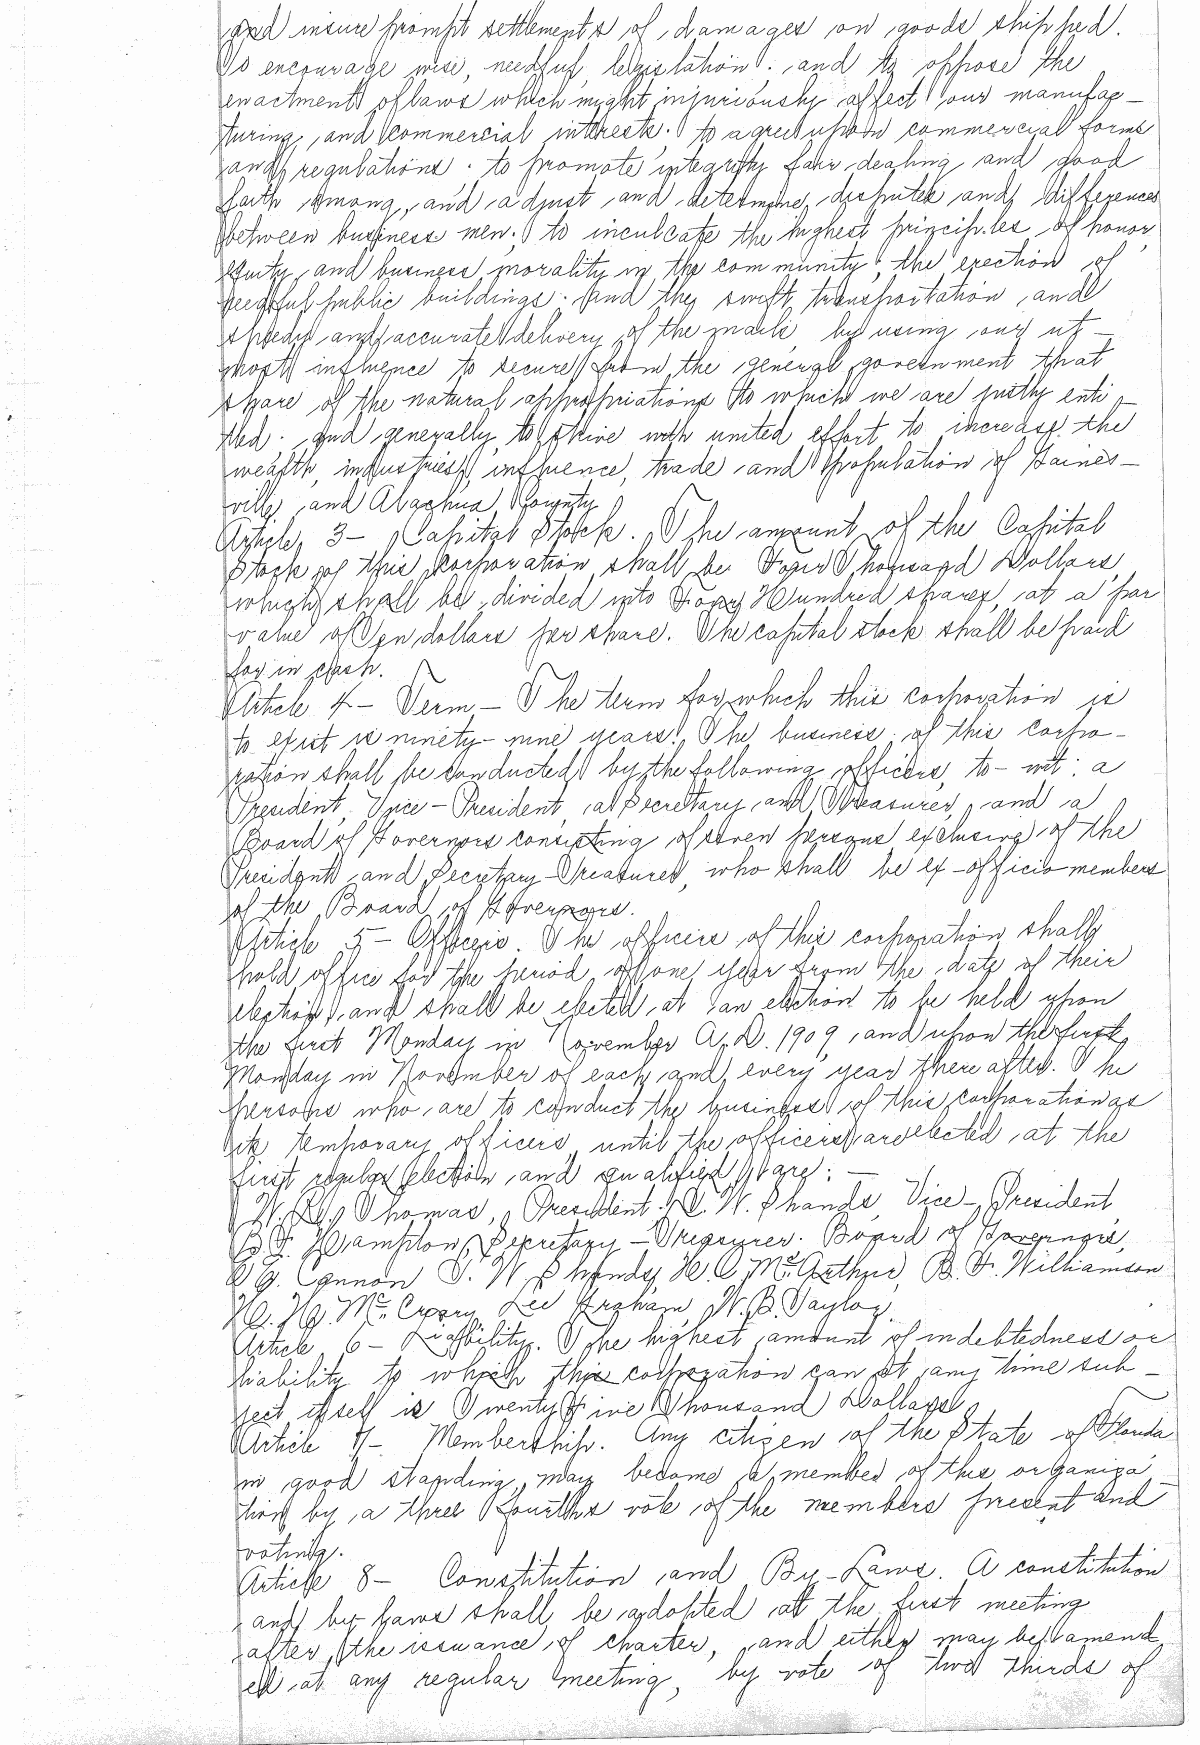 and insure prompt settlements of damages on goods shipped.
To encourage wise, needful legislation. and to oppose the
enactment of laws which might injuriously affect our manufac-
turing and commercial interests. to agree upon commercial forms
and regulations. to promote integrity fair dealing and good
faith among, and adjust and determine disputes and differences
between business men. to inculcate the highest principles of honor,
equity and business morality in the community, the erection of
needful public buildings. and the swift transportation and
speedy and accurate delivery of the mails, by using our ut-
most influence to secure from the general government that
share of the natural appropriations to which we are justly enti-
tled. and generally to strive with united effort to increase the
wealth, industries, influence, trade and population of Gaines-
ville and Alachua County
Article 3- Capital Stock. The amount of the Capital
Stock of this corporation shall be Four Thousand Dollars,
which shall be divided into Four Hundred shares, at a par
value of Ten dollars per share. The capital stock shall be paid
for in cash.
Article 4- Term- The term for which this corporation is
to exist is ninety-nine years. The business of this corpo-
ration shall be conducted by the following officers, to-wit: a
President, Vice-President, a Secretary and Treasurer, and a
Board of Governors consisting of seven persons exclusive of the
President and Secretary-Treasurer, who shall be ex-officio members
of the Board of Governors.
Article 5- Officers. The officers of this corporation shall
hold office for the period of one year from the date of their
election, and shall be elected at an election to be held upon
the first Monday in November A.D. 1909, and upon the first
Monday in November of each and every year there after. The
persons who are to conduct the business of this corporation as
its temporary officers until the officers are elected at the
first regular election and qualified are: -
W. R. Thomas, President. T. W. Shands, Vice-President
B. F. Hampton, Secretary-Treasurer. Board of Governors,
G. Cannon T. W. Shands, H. C. McArthur, B. F. Williamson
H. H. McCreary Lee Graham W. B. Taylor.
Article 6- Liability. The highest amount of indebtedness or
liability to which this corporation can at any time sub-
ject itself is Twenty Five Thousand Dollars.
Article 7- Membership. Any citizen of the State of Florida
in good standing may become a member of this organiza-
tion by a three fourths vote of the members present and
voting.
Article 8- Constitution and By-Laws. A constitution
and by laws shall be adopted at the first meeting
after the issuance of charter, and either may be amend
ed at any regular meeting, by vote of two thirds of